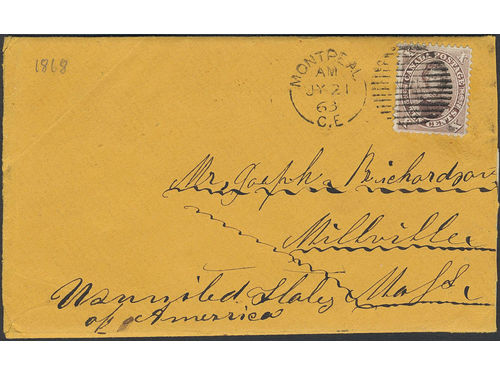 1868
MONTREAL
AM
JY 21
63
C.E
CANADA POSTAGE
CENTS
Mr. Joseph Richardson
Millville
Mass.
Wannited States
of America